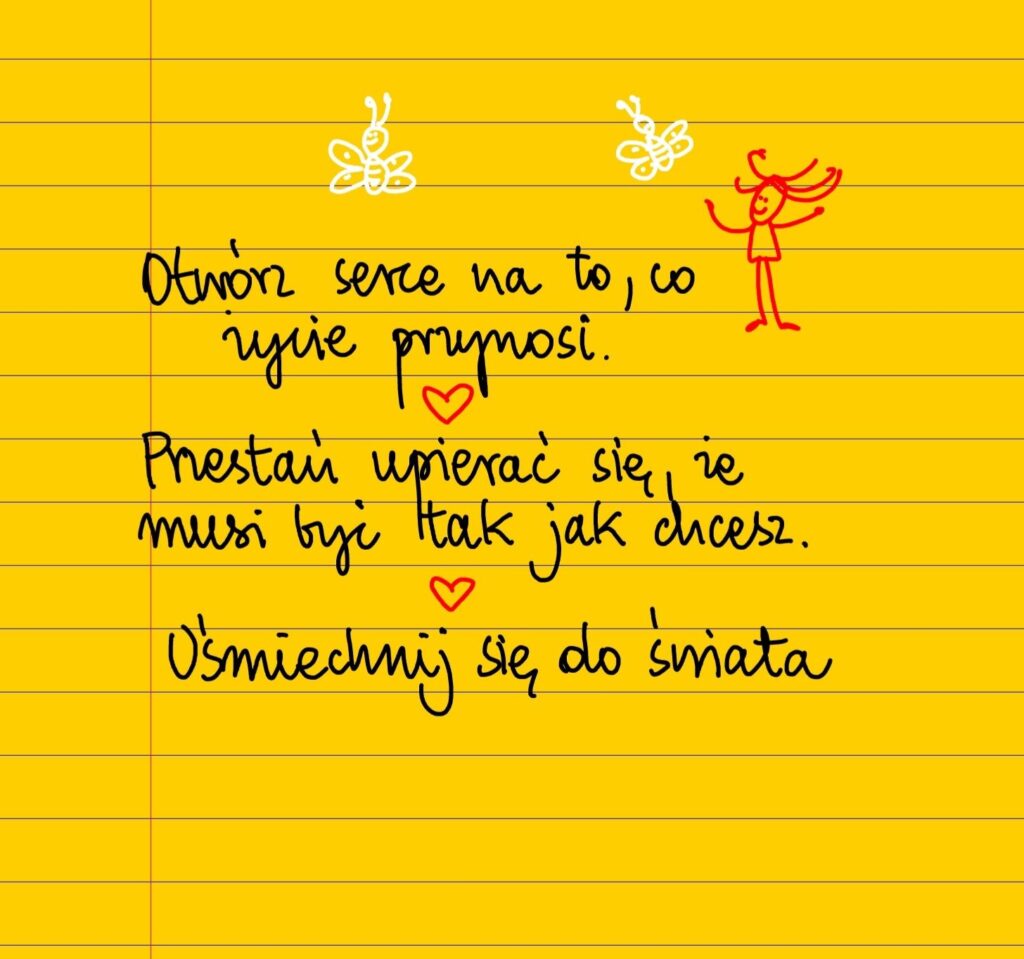 Otwórz serce na to, co
życie przynosi.
Przestań upierać się, że
musi być tak jak chcesz.
Uśmiechnij się do świata